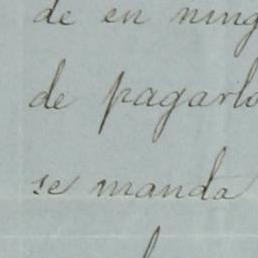 de en ning
de pagarlo
se manda